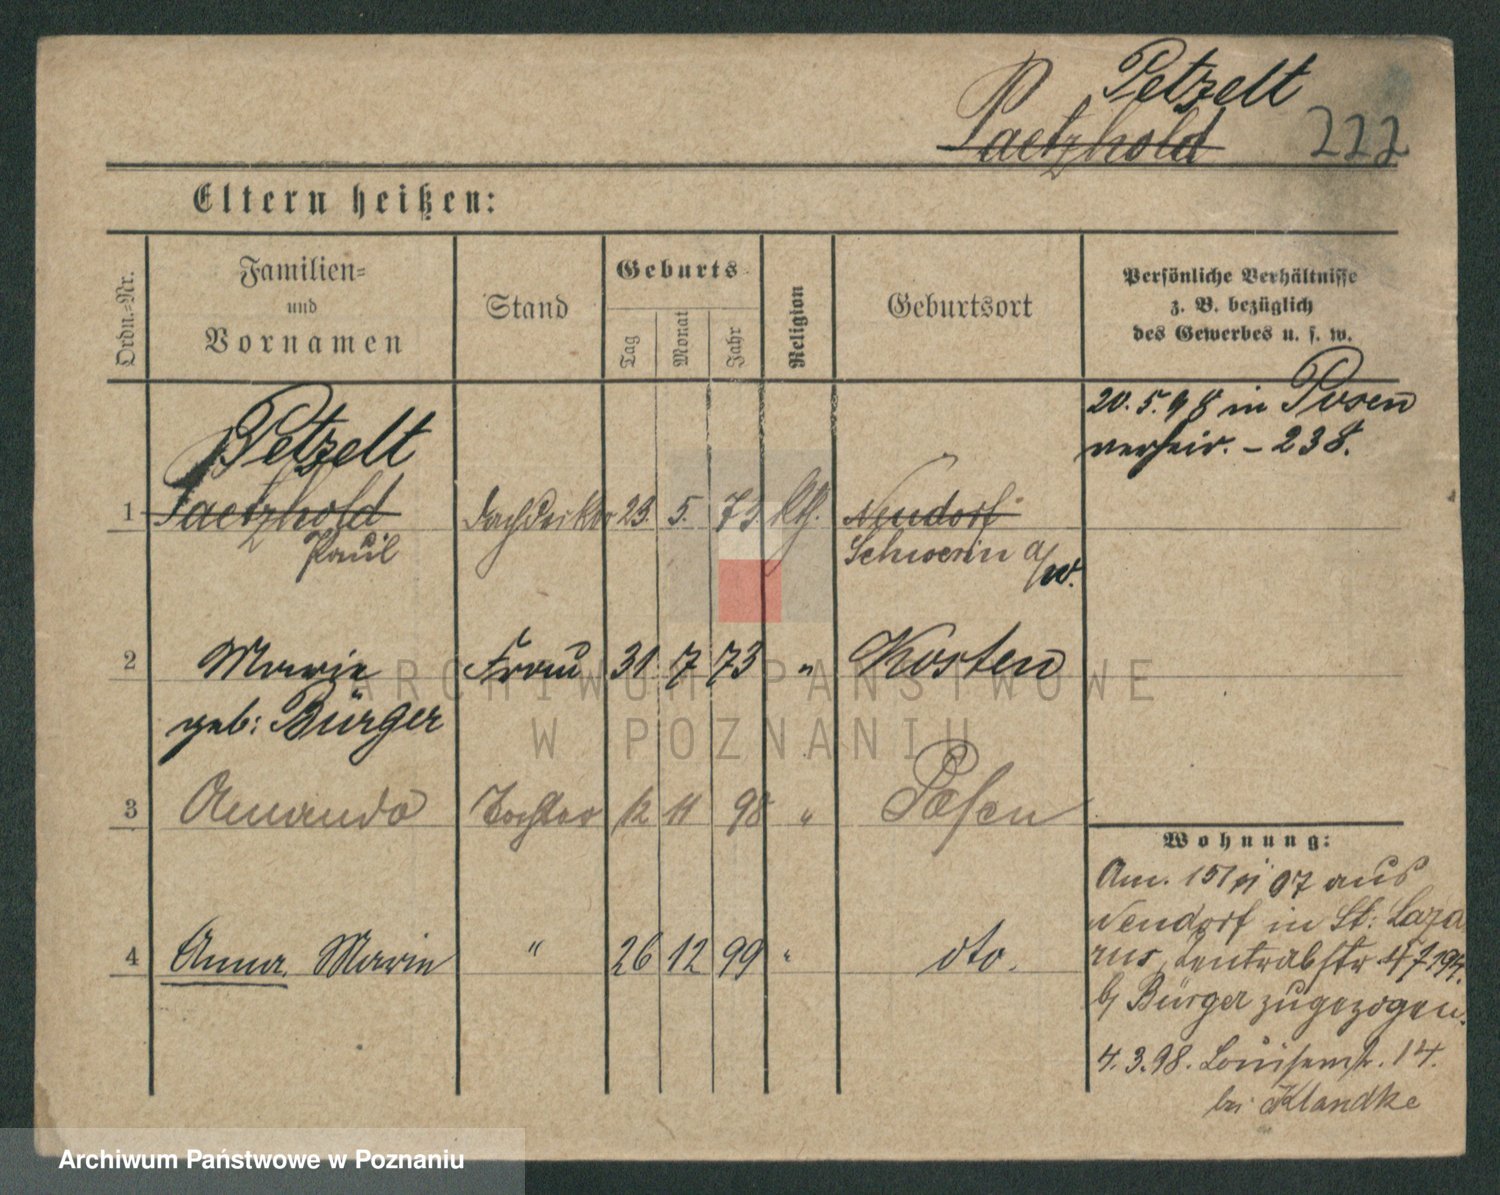 Petzelt
Paetzhold 222
Eltern heißen:
Ordn.=Nr.
Familien=
und
Vornamen
Stand
Geburts
Tag
Monat
Jahr
Religion
Geburtsort
Persönliche Verhältnisse
z. B. bezüglich
des Gewerbes u. s. w.
20. 5. 98 in Posen
verheir. - 238.
Petzelt
1 Paetzhold 23. 5. 73 kth. Neudorf
Paul Schwerin a/W.
2 Marie Frau 31 7 73 " Kosten
geb: Bürger
3 Amanda Tochter 12 11 98 " Posen
Wohnung:
Am. 15/XI 97 aus
Neudorf in St: Laza
4 Anna Marie " 26 12 99 " dto.
rus, Centralstr
b/ Bürger zugezogen.
4. 3. 98. Louisenstr. 14.
bei Klandke
ARCHIWUM PAŃSTWOWE
W POZNANIU
Archiwum Państwowe w Poznaniu